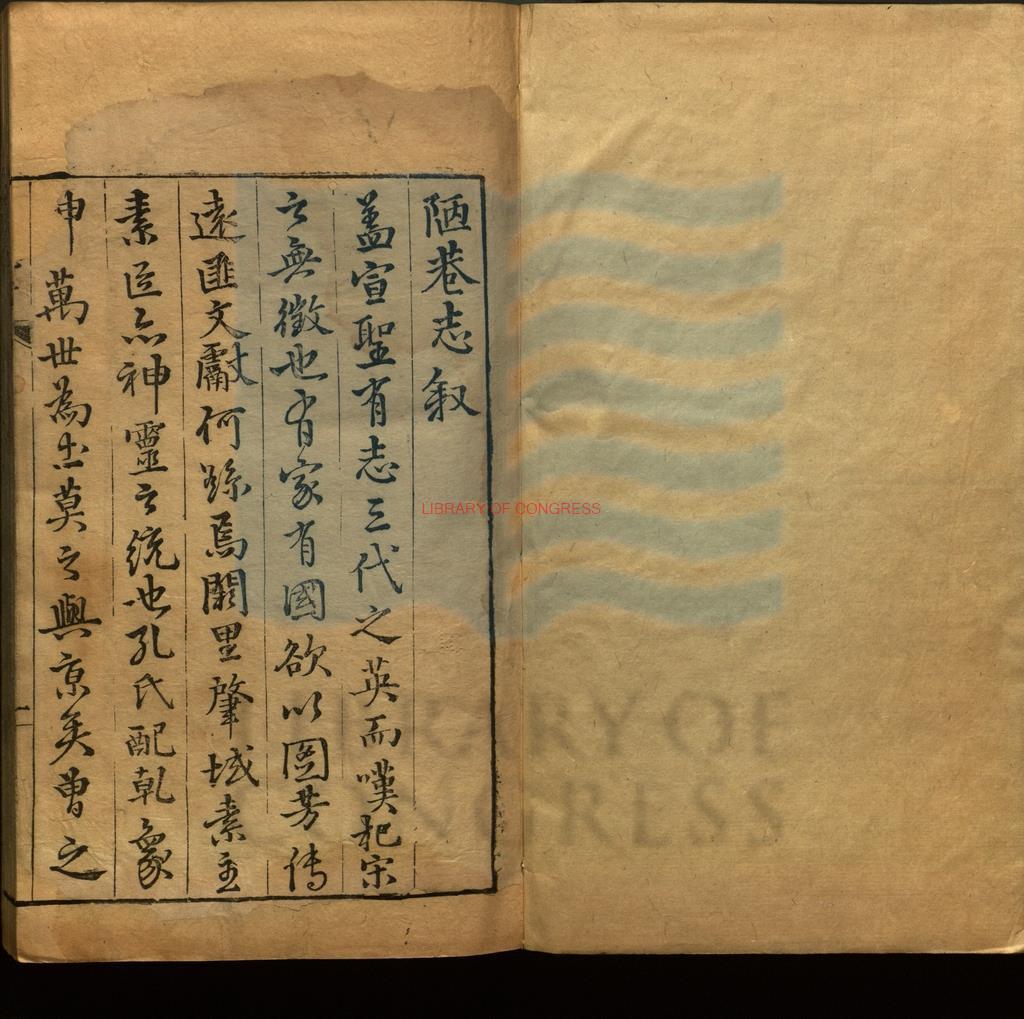 陋巷志叙
盖宣聖有志三代之英而嘆杞宋
之無徵也有家有國欲以圖芳傳
遠匪文獻何繇焉闕里肇域素王
素臣亦神靈之统也孔氏配乹象
申萬世為出莫之與京矣曽之
LIBRARY OF CONGRESS
LIBRARY OF
CONGRESS